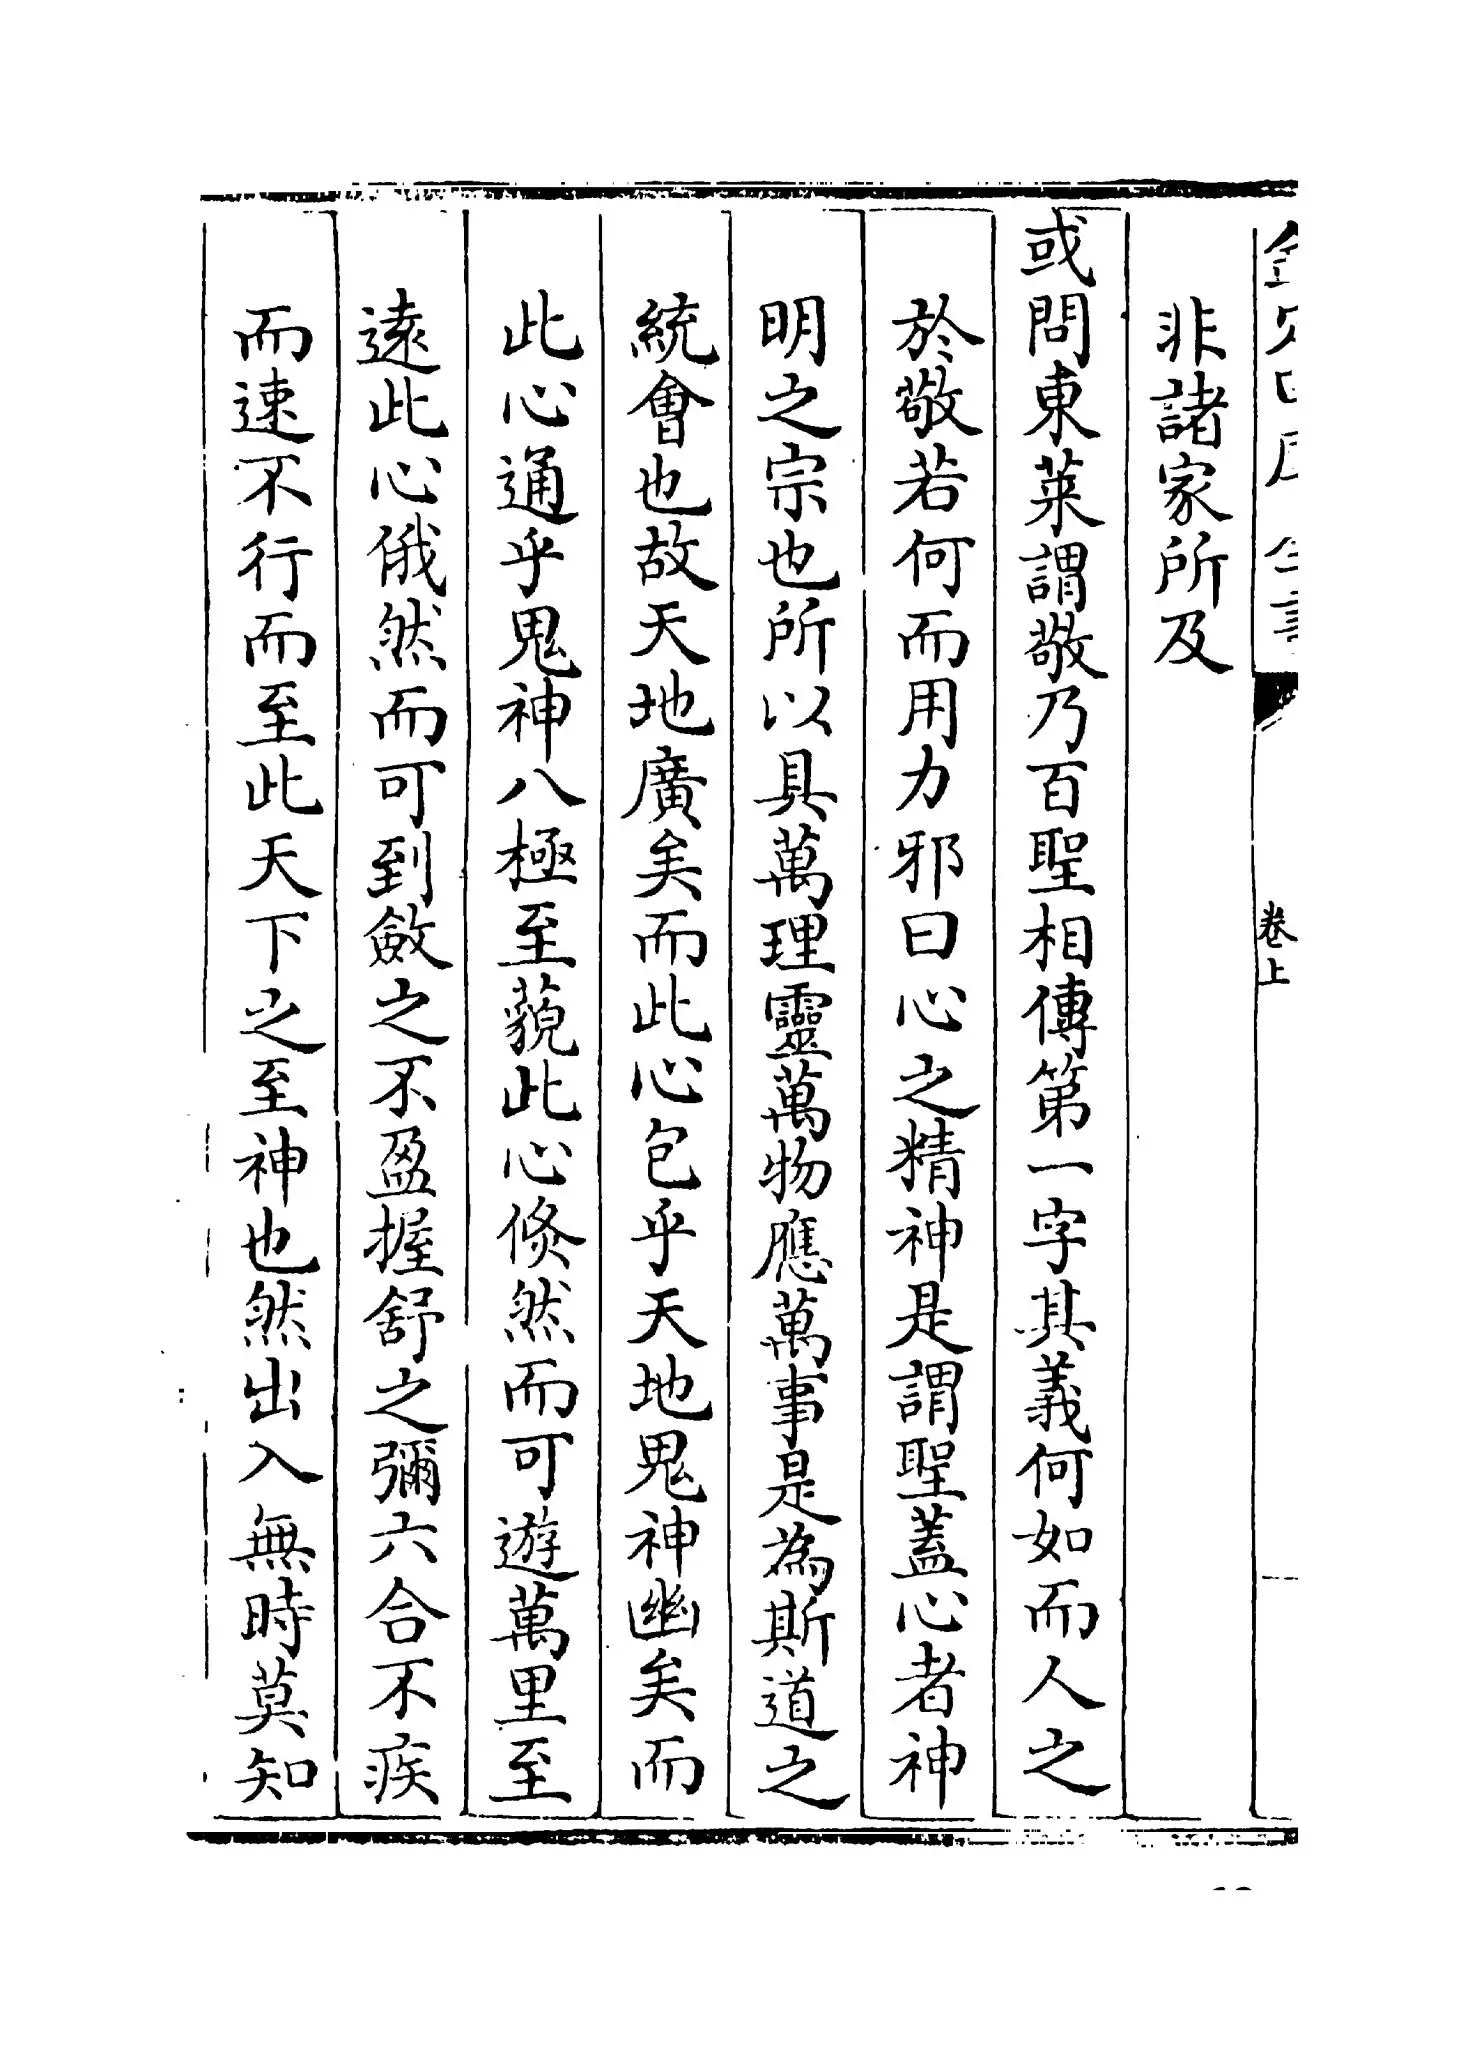 卷上
非諸家所及
或問東萊謂敬乃百聖相傳第一字其義何如而人之
於敬若何而用力邪曰心之精神是謂聖蓋心者神
明之宗也所以具萬理靈萬物應萬事是為斯道之
統會也故天地廣矣而此心包乎天地鬼神幽矣而
此心通乎鬼神八極至藐此心倏然而可遊萬里至
遠此心俄然而可到斂之不盈握舒之彌六合不疾
而速不行而至此天下之至神也然出入無時莫知